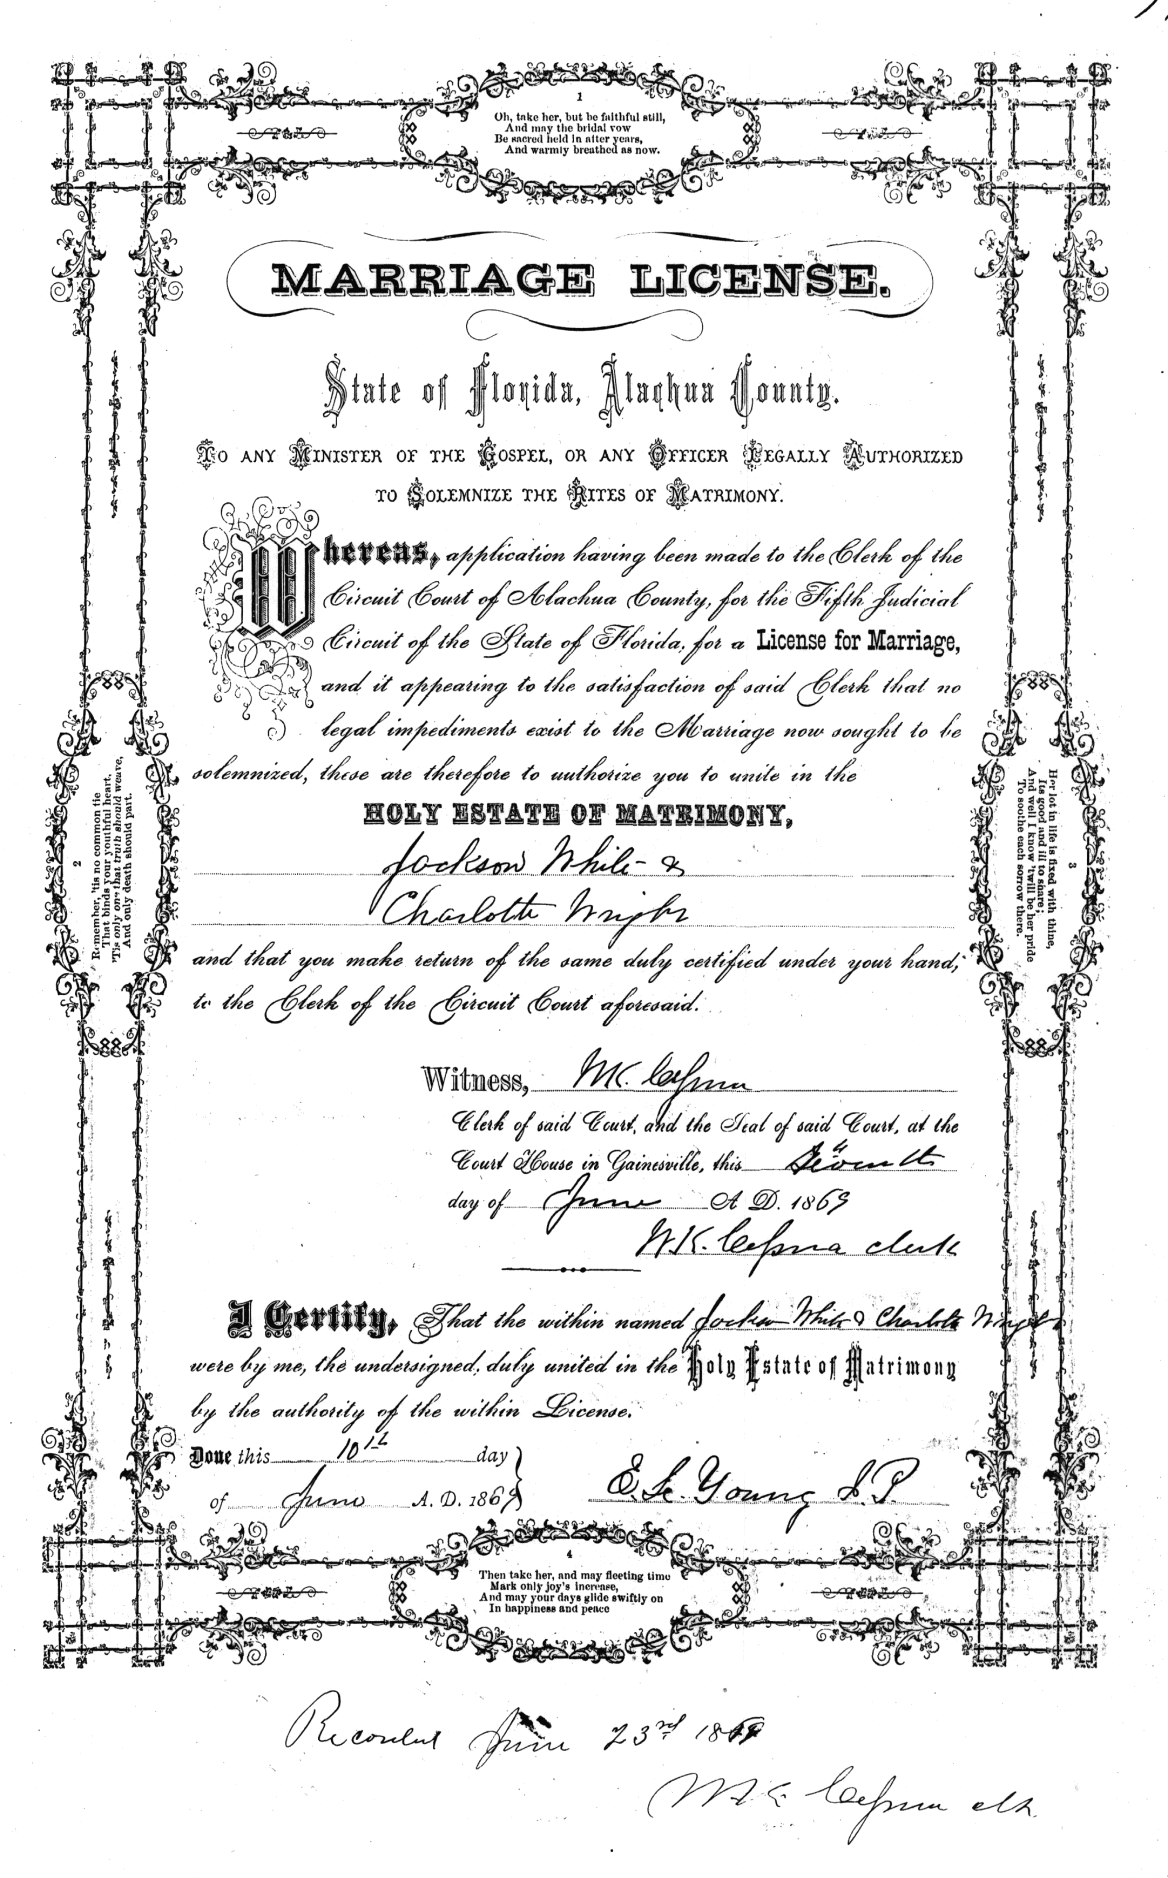 1
Oh, take her, but be faithful still,
And may the bridal vow
Be sacred held in after years,
And warmly breathed as now.
MARRIAGE LICENSE.
State of Florida, Alachua County.
TO ANY MINISTER OF THE GOSPEL, OR ANY OFFICER LEGALLY AUTHORIZED
TO SOLEMNIZE THE RITES OF MATRIMONY.
Whereas, application having been made to the Clerk of the
Circuit Court of Alachua County, for the Fifth Judicial
Circuit of the State of Florida, for a License for Marriage,
and it appearing to the satisfaction of said Clerk that no
legal impediments exist to the Marriage now sought to be
solemnized, these are therefore to authorize you to unite in the
HOLY ESTATE OF MATRIMONY,
Jackson White &
Charlotte Wright
and that you make return of the same duly certified under your hand,
to the Clerk of the Circuit Court aforesaid.
2
Remember, 'tis no common tie
That binds your youthful heart,
'Tis only one that truth should weave,
And only death should part.
3
Her lot in life is fixed with thine,
Its good and ill to share;
And well I know 'twill be her pride
To soothe each sorrow there.
Witness, W.K. Cessna
Clerk of said Court, and the Seal of said Court, at the
Court House in Gainesville, this Seventh
day of June A D. 1869
W.K. Cessna Clerk
I Certify, That the within named Jackson White & Charlotte Wright
were by me, the undersigned, duly united in the Holy Estate of Matrimony
by the authority of the within License.
Done this 10th day
of June A. D. 1869
E. L. Young J. P.
4
Then take her, and may fleeting time
Mark only joy's increase,
And may your days glide swiftly on
In happiness and peace
Recorded June 23rd 1869
W K Cessna clk.